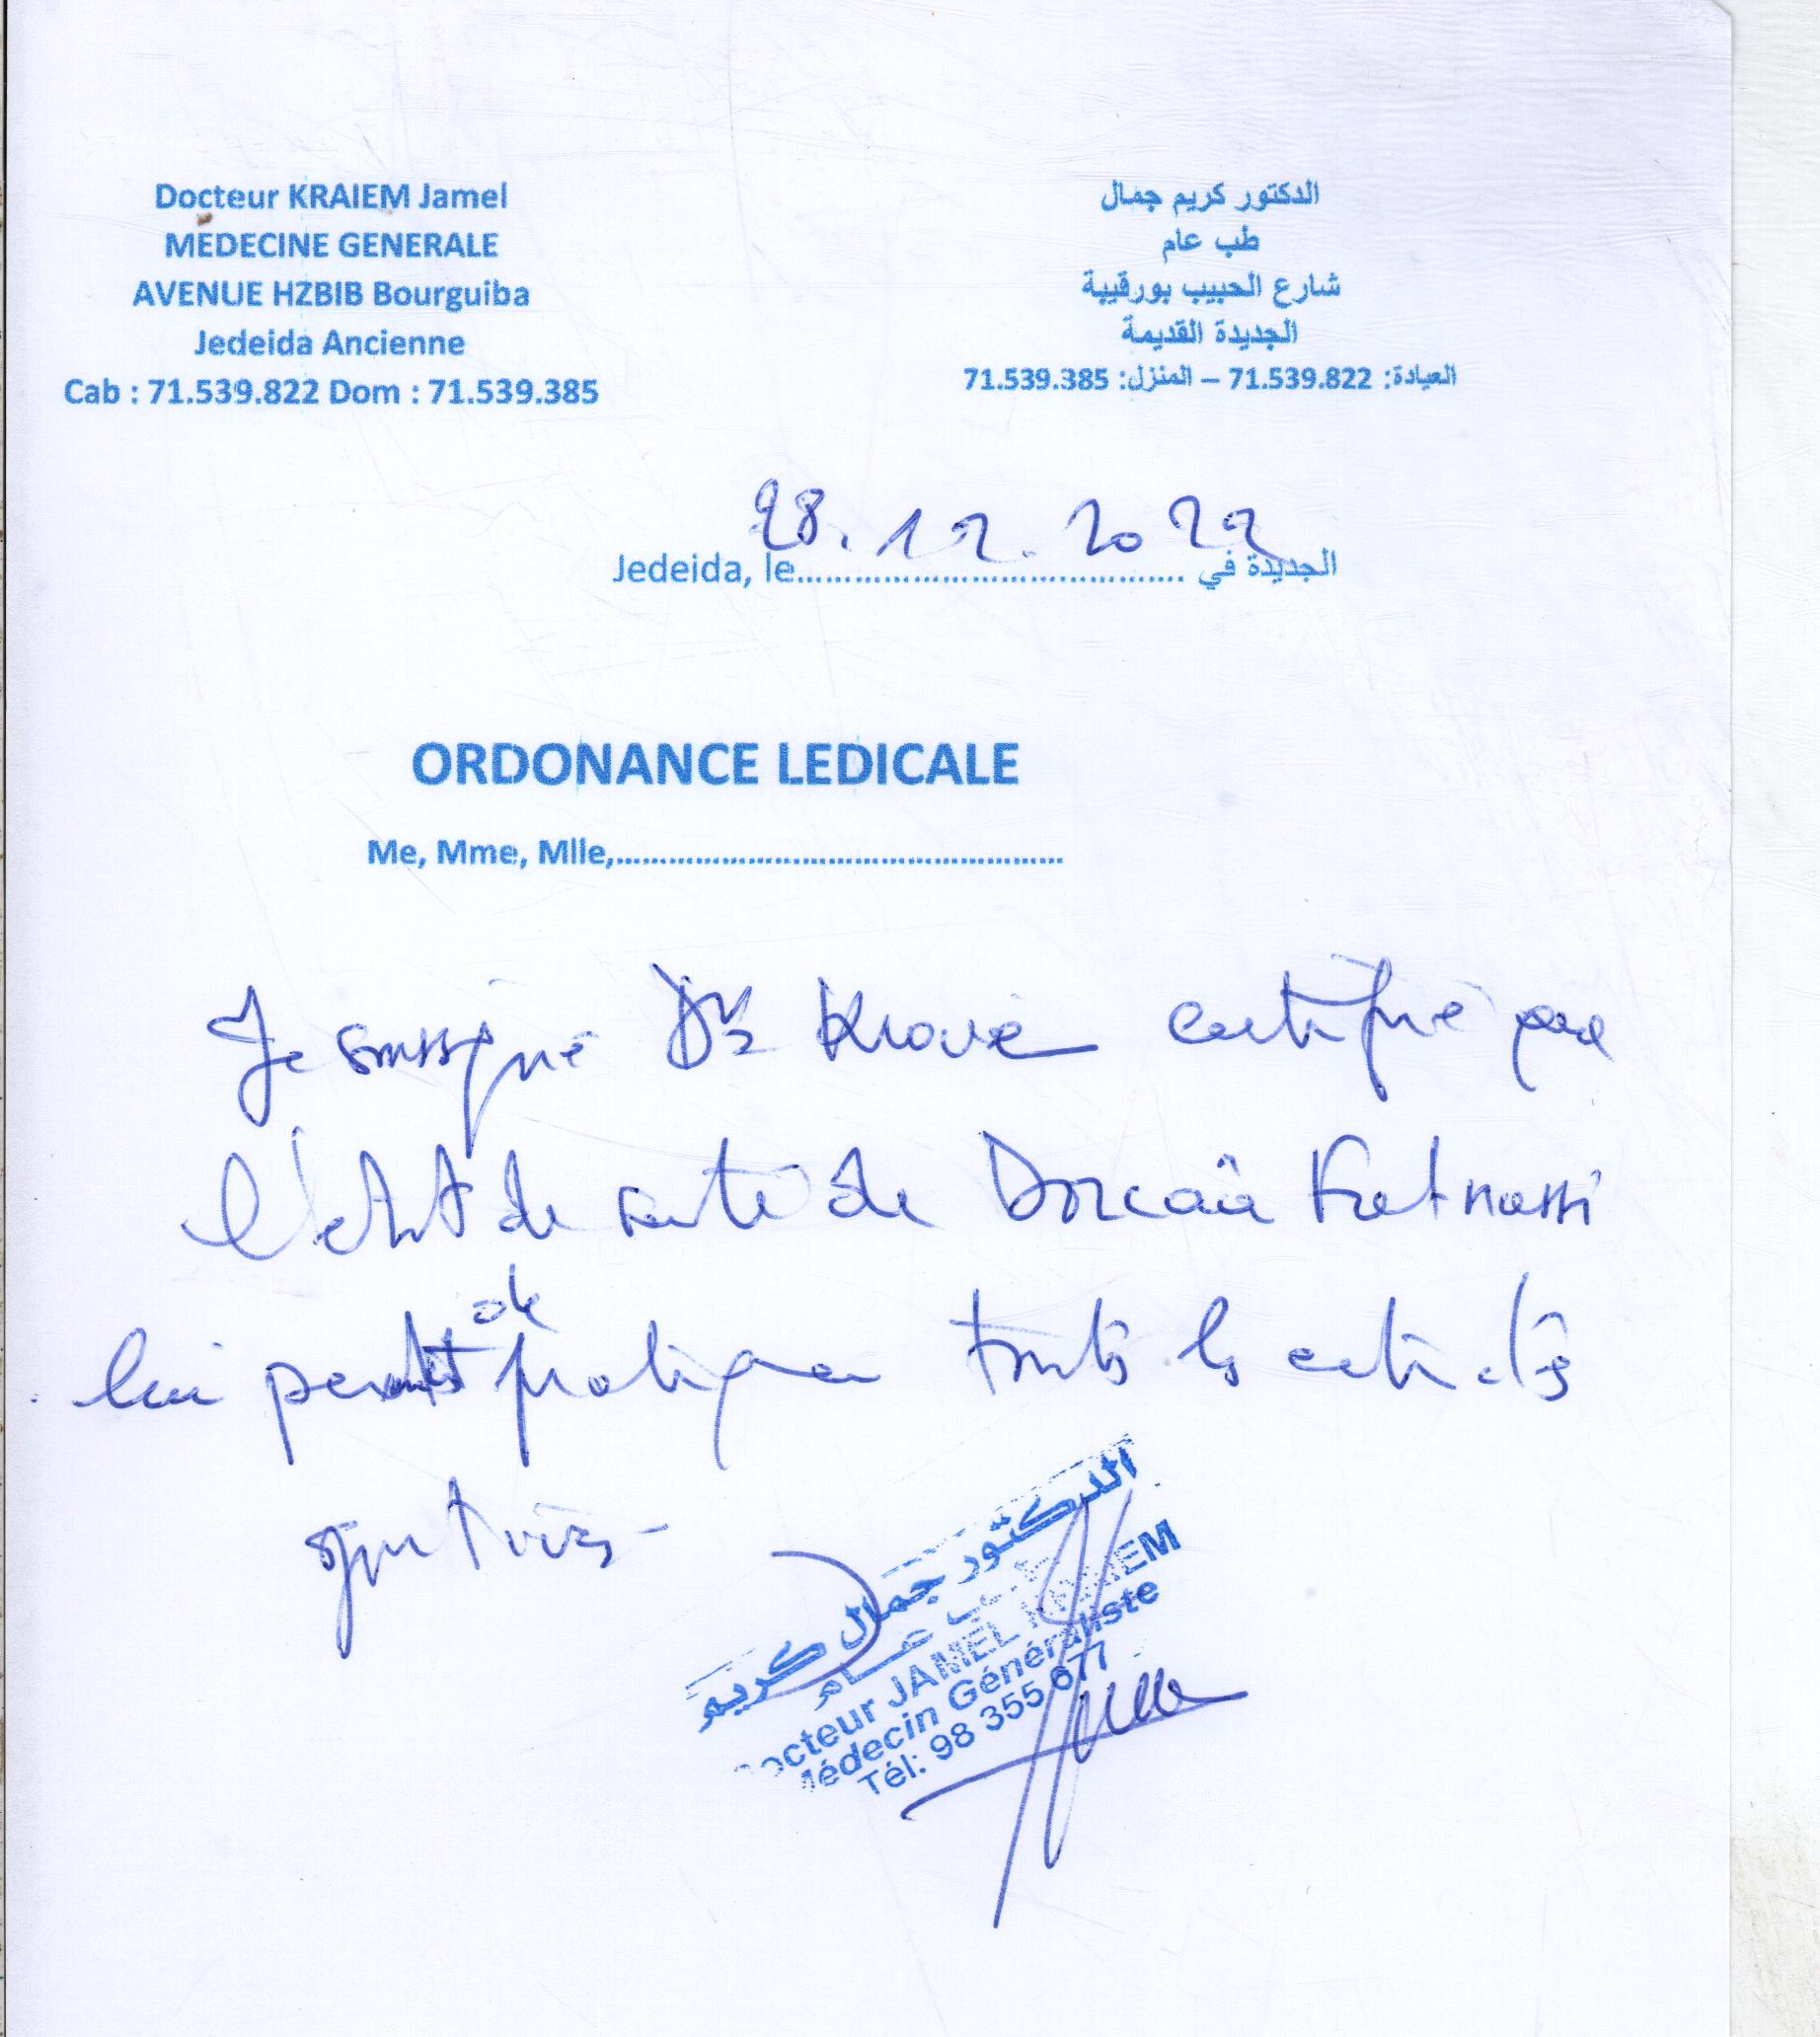 Docteur KRAIEM Jamel
MEDECINE GENERALE
AVENUE HZBIB Bourguiba
Jedeida Ancienne
Cab : 71.539.822 Dom : 71.539.385
الدكتور كريم جمال
طب عام
شارع الحبيب بورقيبة
الجديدة القديمة
العيادة: 71.539.822 – المنزل: 71.539.385
28.12.2022
Jedeida, le........................................ الجديدة في
ORDONANCE LEDICALE
Me, Mme, Mlle,................................................
Je soussigné Dr certifie que
l'état de santé de Fatnassi
lui permet de pratiquer toutes les activités
sportives
الدكتور جمال كريم
طب عام
Docteur JAMEL KRAIEM
Médecin Généraliste
Tél: 98 355 677